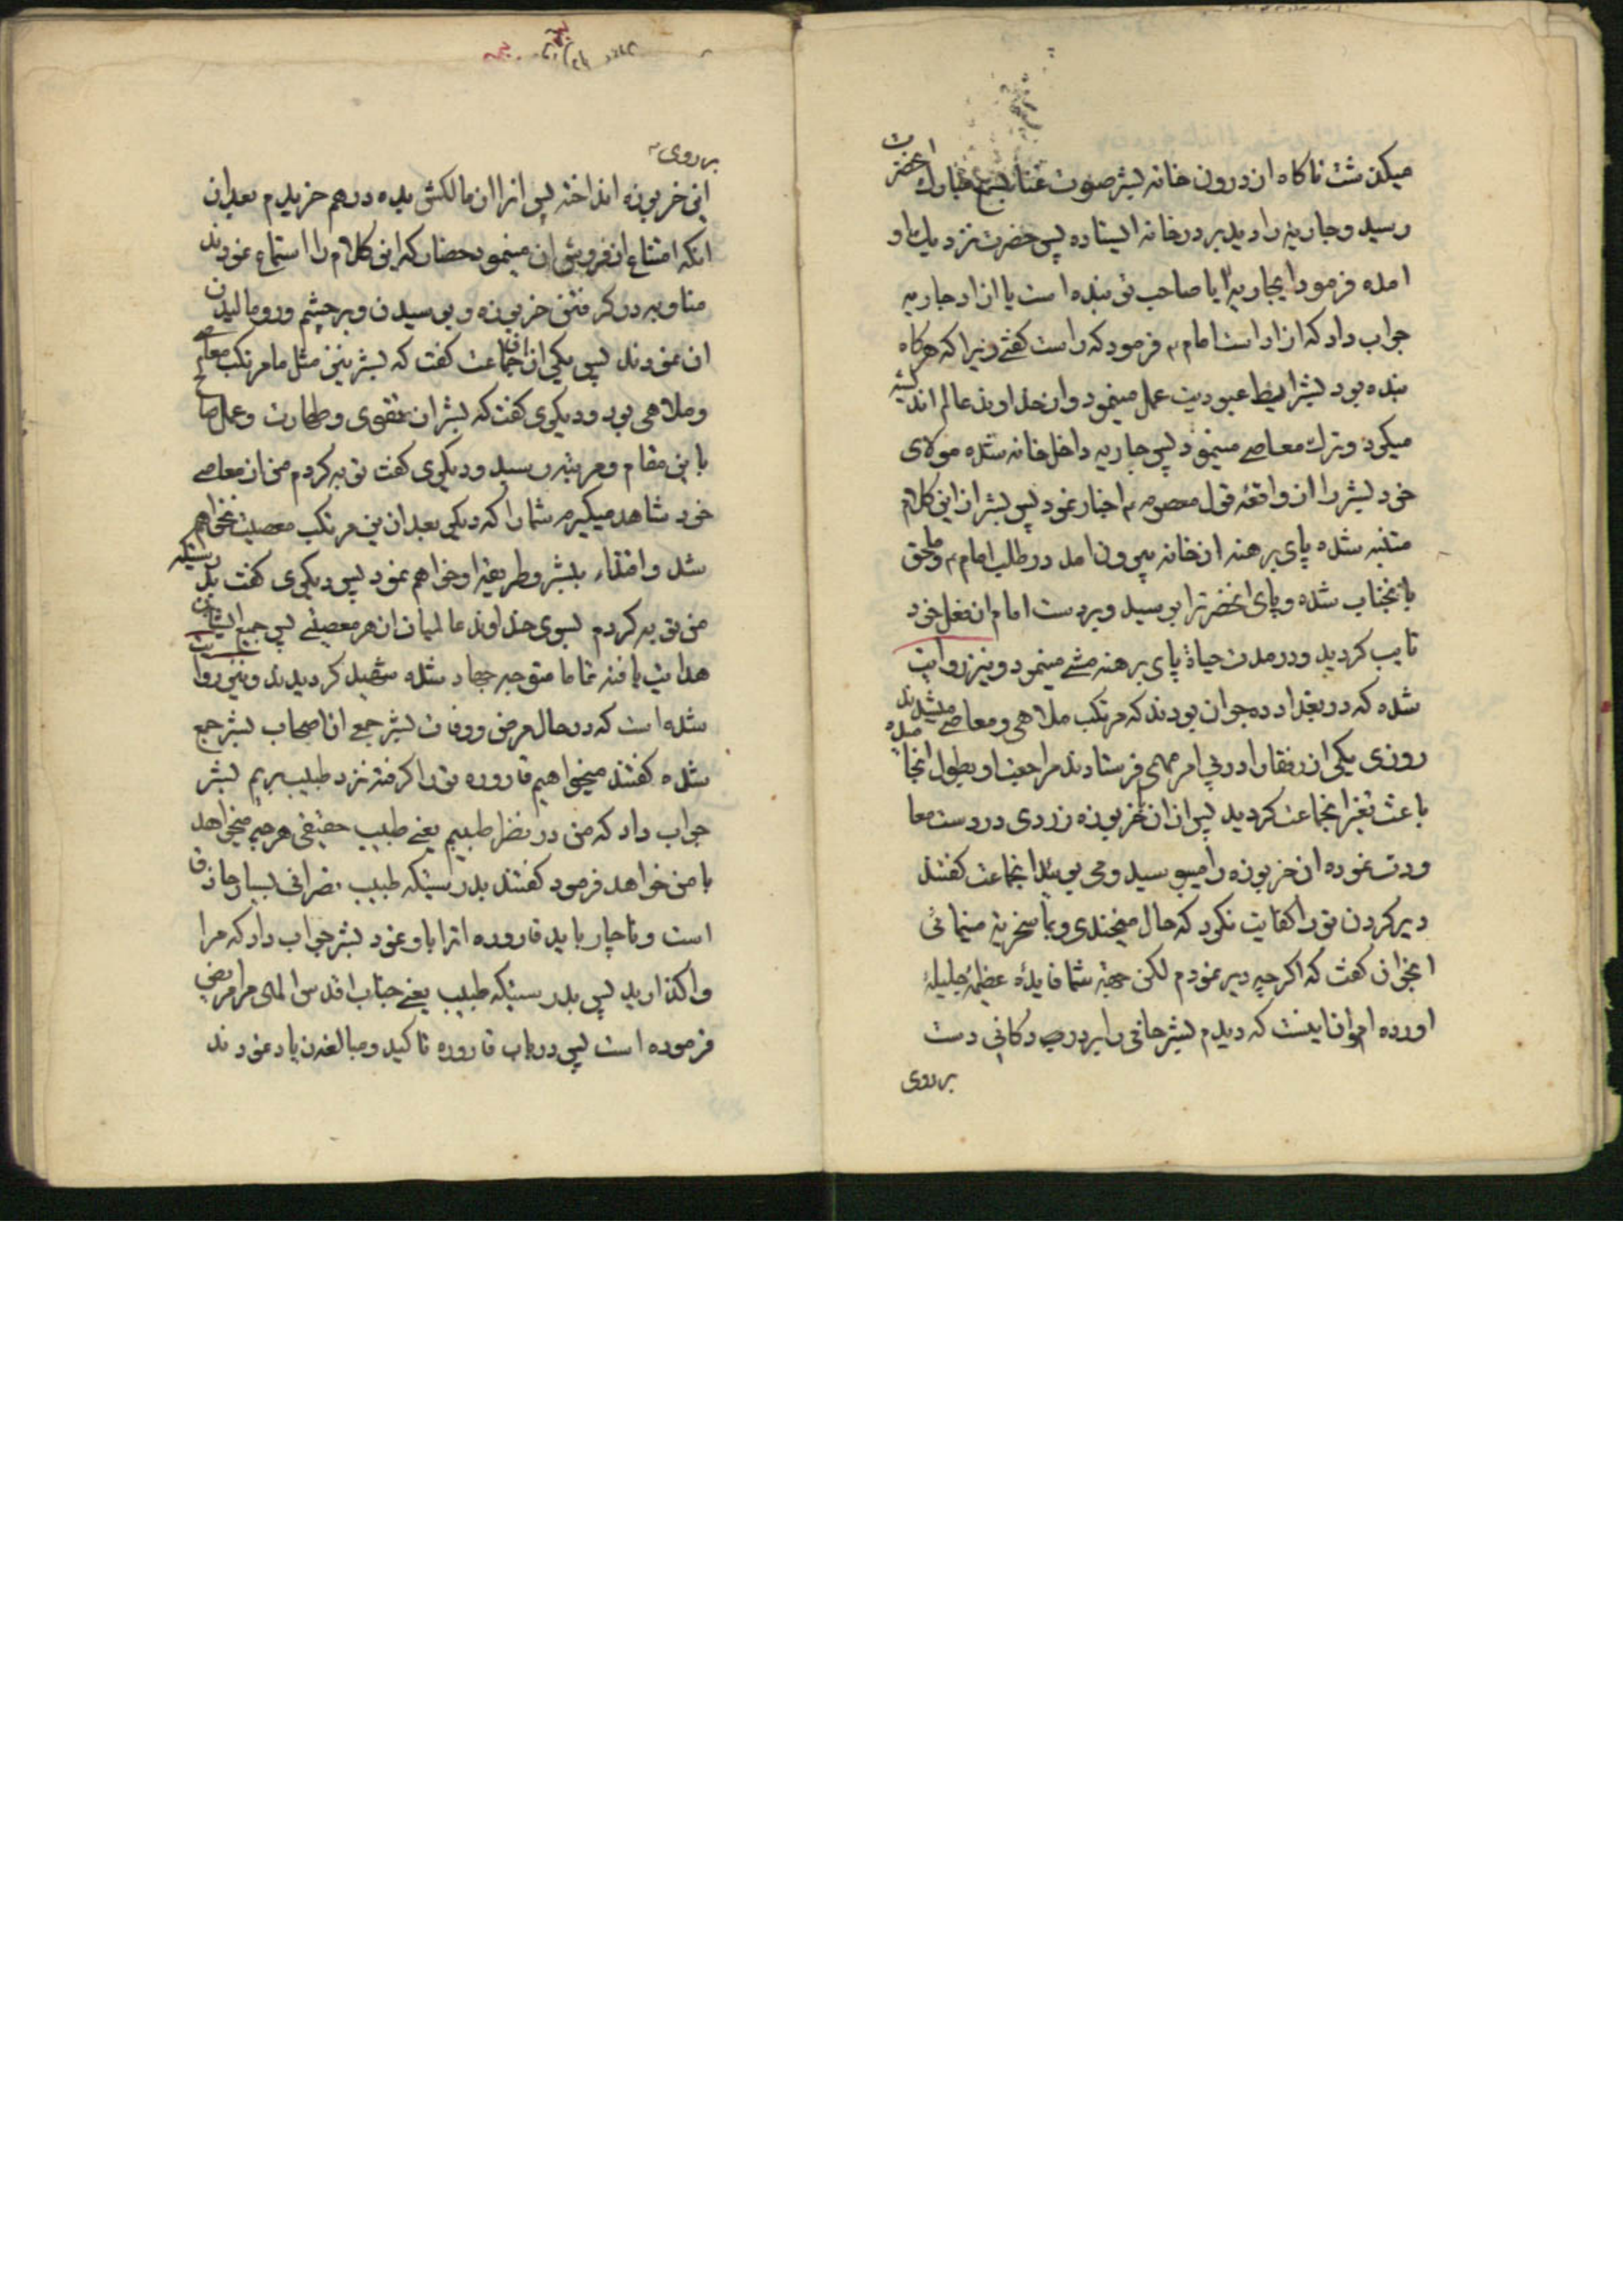 میکذشت ناکاه از درون خانه بشر صوت غنا بسمع مبارک انحضرت
رسید و جاریه را دید بر در خانه ایستاده پس حضرت نزدیک او
امده فرمود ایجاریه ایا صاحب تو بنده است یا ازاد جاریه
جواب داد که ازاد است امام ع فرمود که راست کفتی زیرا که هرکاه
بنده بود بشرایط عبودیت عمل مینمود و از خداوند عالم اندیشه
میکرد و ترک معاصی مینمود پس جاریه داخل خانه شده مولای
خود بشر را از واقعه قول معصوم ع اخبار نمود پس بشر از این کلام
متنبه شده پای برهنه از خانه بیرون امد در طلب امام ع و ملحق
بانجناب شده و پای انحضرترا بوسید و بر دست امام از فعل خود
تایب کردید و در مدت حیاة پای برهنه مشی مینمود و نیز روایت
شده که در بغداد ده جوان بودند که مرتکب ملاهی و معاصی میشدند
روزی یکی از رفقا را در پی امر مهمی فرستادند مراجعت او بطول انجامیده
باعث تغیر انجماعت کردید پس از ان خربوزه زردی در دست معا
ودت نموده ان خربوزه را میبوسید و می بوئید انجماعت کفتند
دیر کردن تو را کفایت نکرد که حال میخندی و بما سخریه مینمائی
انجوان کفت که اکرچه دیر نمودم لکن جهة شما فایدهٔ عظیمهٔ جلیلهٔ
اورده ام و ان اینست که دیدم بشر حافی را بر در دکانی دست
بر روی
بر روی
این خربوزه انداخته پس انرا از مالکش بده درهم خریدم بعد از
انکه امتناع از فروش ان مینمود حضار که این کلام را استماع نمودند
مناوبه در کرفتن خربوزه و بوسیدن و بر چشم و رو مالیدن
ان نمودند پس یکی از ان جماعت کفت که بشر نیز مثل ما مرتکب معاصی
و ملاهی بود و دیکری کفت که بشر از تقوی و طهارت و عمل صالح
باین مقام و مرتبه رسید و دیکری کفت توبه کردم من از معاصی
خود شاهد میکیرم شما را که دیکر بعد از این مرتکب معصیت نخواهم
شد و اقتداء ببشر و طریقه او خواهم نمود پس دیکری کفت بدرستیکه
من توبه کردم بسوی خداوند عالمیان از هر معصیتی پس جمیع ایشان
هدایت یافته تماما متوجه جهاد شده شهید کردیدند و نیز روایت
شده است که در حال مرض و وفات بشر جمعی از اصحاب بشر جمع
شده کفتند میخواهیم قاروره تو را کرفته نزد طبیب بریم بشر
جواب داد که من در نظر طبیبم یعنی طبیب حقیقی هرچه میخواهد
با من خواهد فرمود کفتند بدرستیکه طبیب نصرانی بسیار حاذق
است و ناچار باید قاروره اترا باو نمود بشر جواب داد که مرا
واکذارید پس بدرستیکه طبیب یعنی جناب اقدس الهی مرا مریض
فرموده است پس در باب قاروره تاکید و مبالغه زیاد نمودند